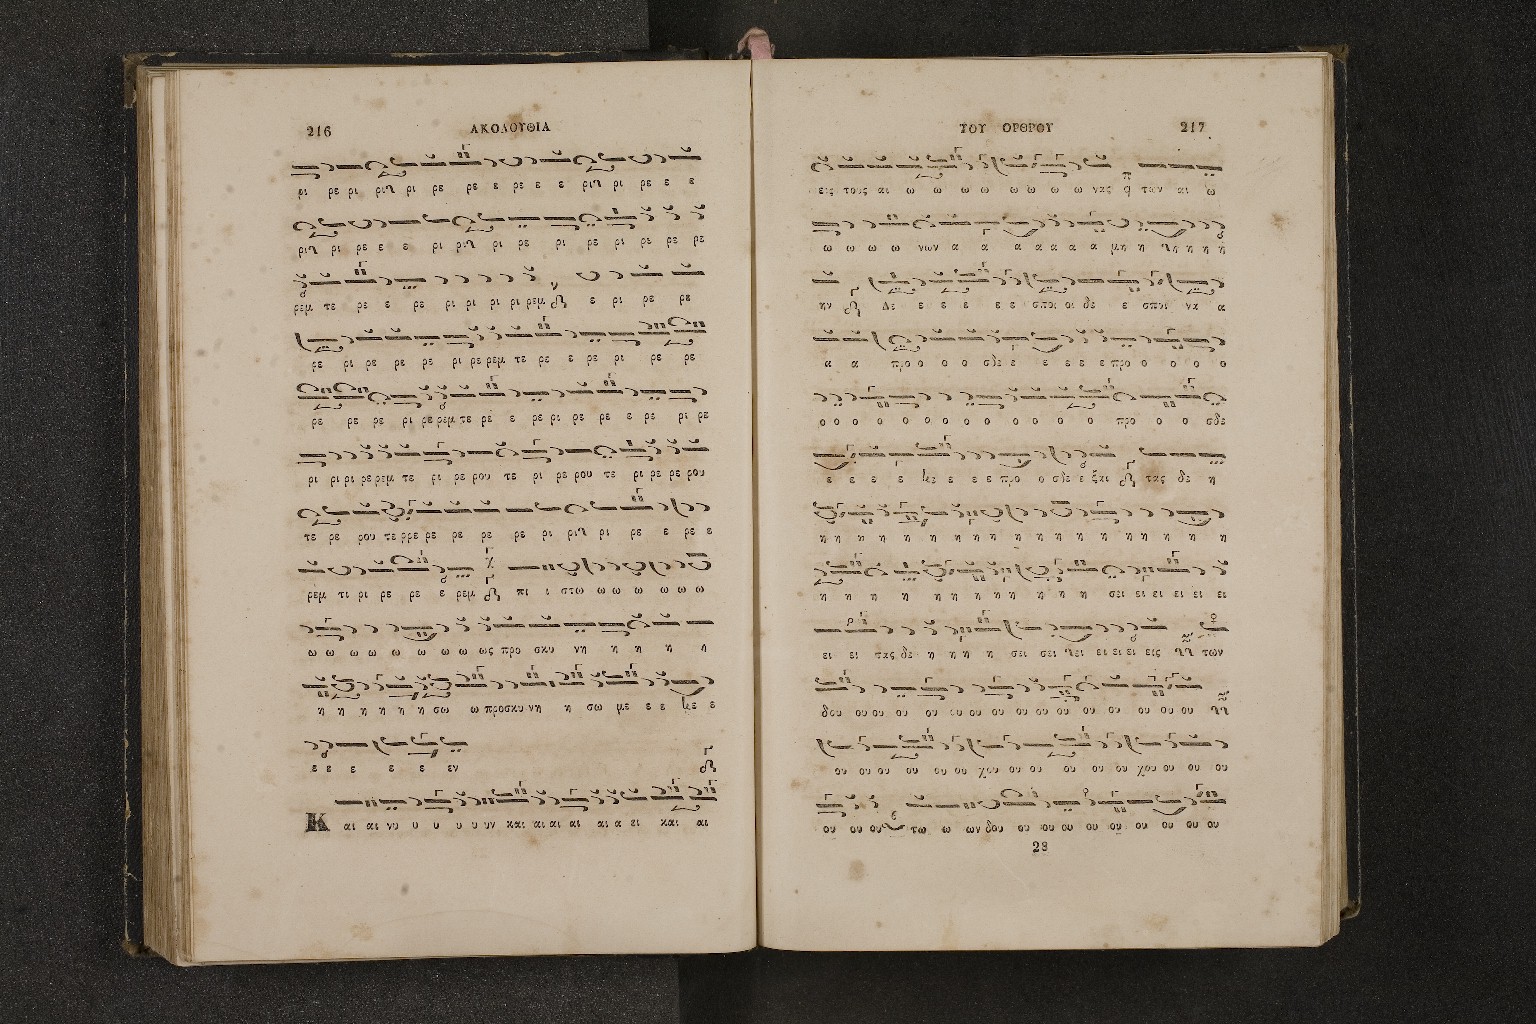 216 ΑΚΟΛΟΥΘΙΑ
ρι ρε ρι ριλ ρι ρε ρε ε ρε ε ε ριλ ρι ρε ε ε
ριλ ρι ρε ε ε ρι ριλ ρι ρε ρι ρε ρι ρε ρε ρε
ρεμ τε ρε ε ρε ρι ρι ρι ρι ρεμ ε ρι ρε ρε
ρε ρι ρε ρε ρε ρι ρε ρεμ τε ρε ε ρε ρι ρε ρε
ρε ρε ρε ρι ρε ρεμ τε ρε ε ρε ρι ρε ρε ε ρε ρι ρε
ρι ρι ρι ρε ρεμ τε ρι ρε ρου τε ρι ρε ρου τε ρι ρε ρε ρου
τε ρε ρου τε ρρε ρε ρε ρε ρε ρι ριλ ρι ρε ε ρε ε
ρεμ τι ρι ρε ρε ε ρεμ πι ι στω ω ω ω ω ω ω
ω ω ω ω ω ω ω ω ως προ σκυ νη η η η η
η η η η η η σω ω προσκυ νη η σω με ε ε κε ε
ε ε ε ε ε εν
Κ αι αι νυ υ υ υ υ υν και αι αι αι αι α ει και αι
ΤΟΥ ΟΡΘΡΟΥ 217
εις τους αι ω ω ω ω ω ω ω ω νας των αι ω
ω ω ω ω νων α α α α α α α μη η λη η η η
ην Δε ε ε ε ε ε ε σποι οι δε ε σποι να α
α α προ ο ο ο σδε ε ε ε ε ε προ ο ο ο ο
ο ο ο ο ο ο ο ο ο ο ο ο ο ο προ ο ο σδε
ε ε ε ε κε ε ε ε προ ο σδε ε ξαι τας δε η
η η η η η η η η η η η η η η η η η
η η η η η η η η η η η σει ει ει ει ει ει
ει ει τας δε η η η η σει σει λει ει ει ει εις των
δου ου ου ου ου ου ου ου ου ου ου ου ου ου ου ου
ου ου ου ου ου ου χου ου ου ου ου ου χου ου ου ου
ου ου ου τω ω ων δου ου ου ου ου ου ου ου ου ου
28